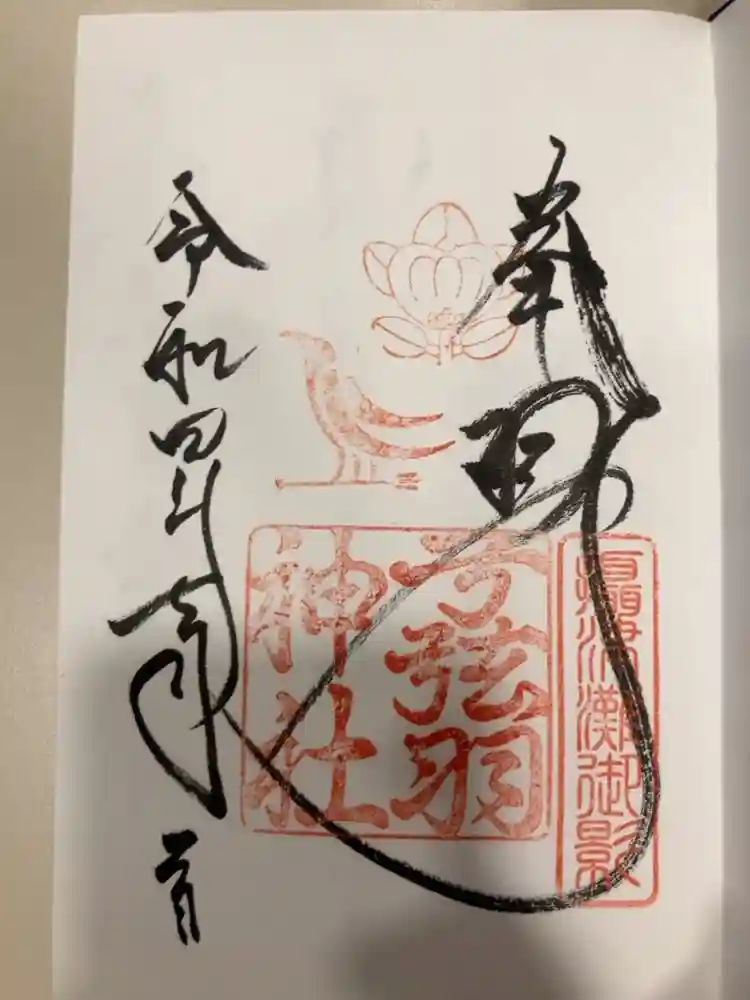 奉拝
灘御影
弓弦羽
神社
令和四年